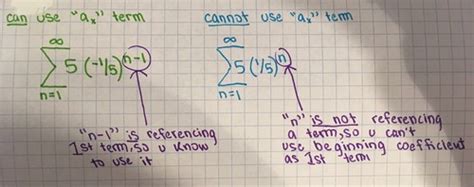 can use "aₓ" term
∞
∑ 5 (-1/5)ⁿ⁻¹
n=1
"n-1" is referencing
1st term, so u know
to use it
cannot use "aₓ" term
∞
∑ 5 (1/5)ⁿ
n=1
"n" is not referencing
a term, so u can't
use beginning coefficient
as 1st term